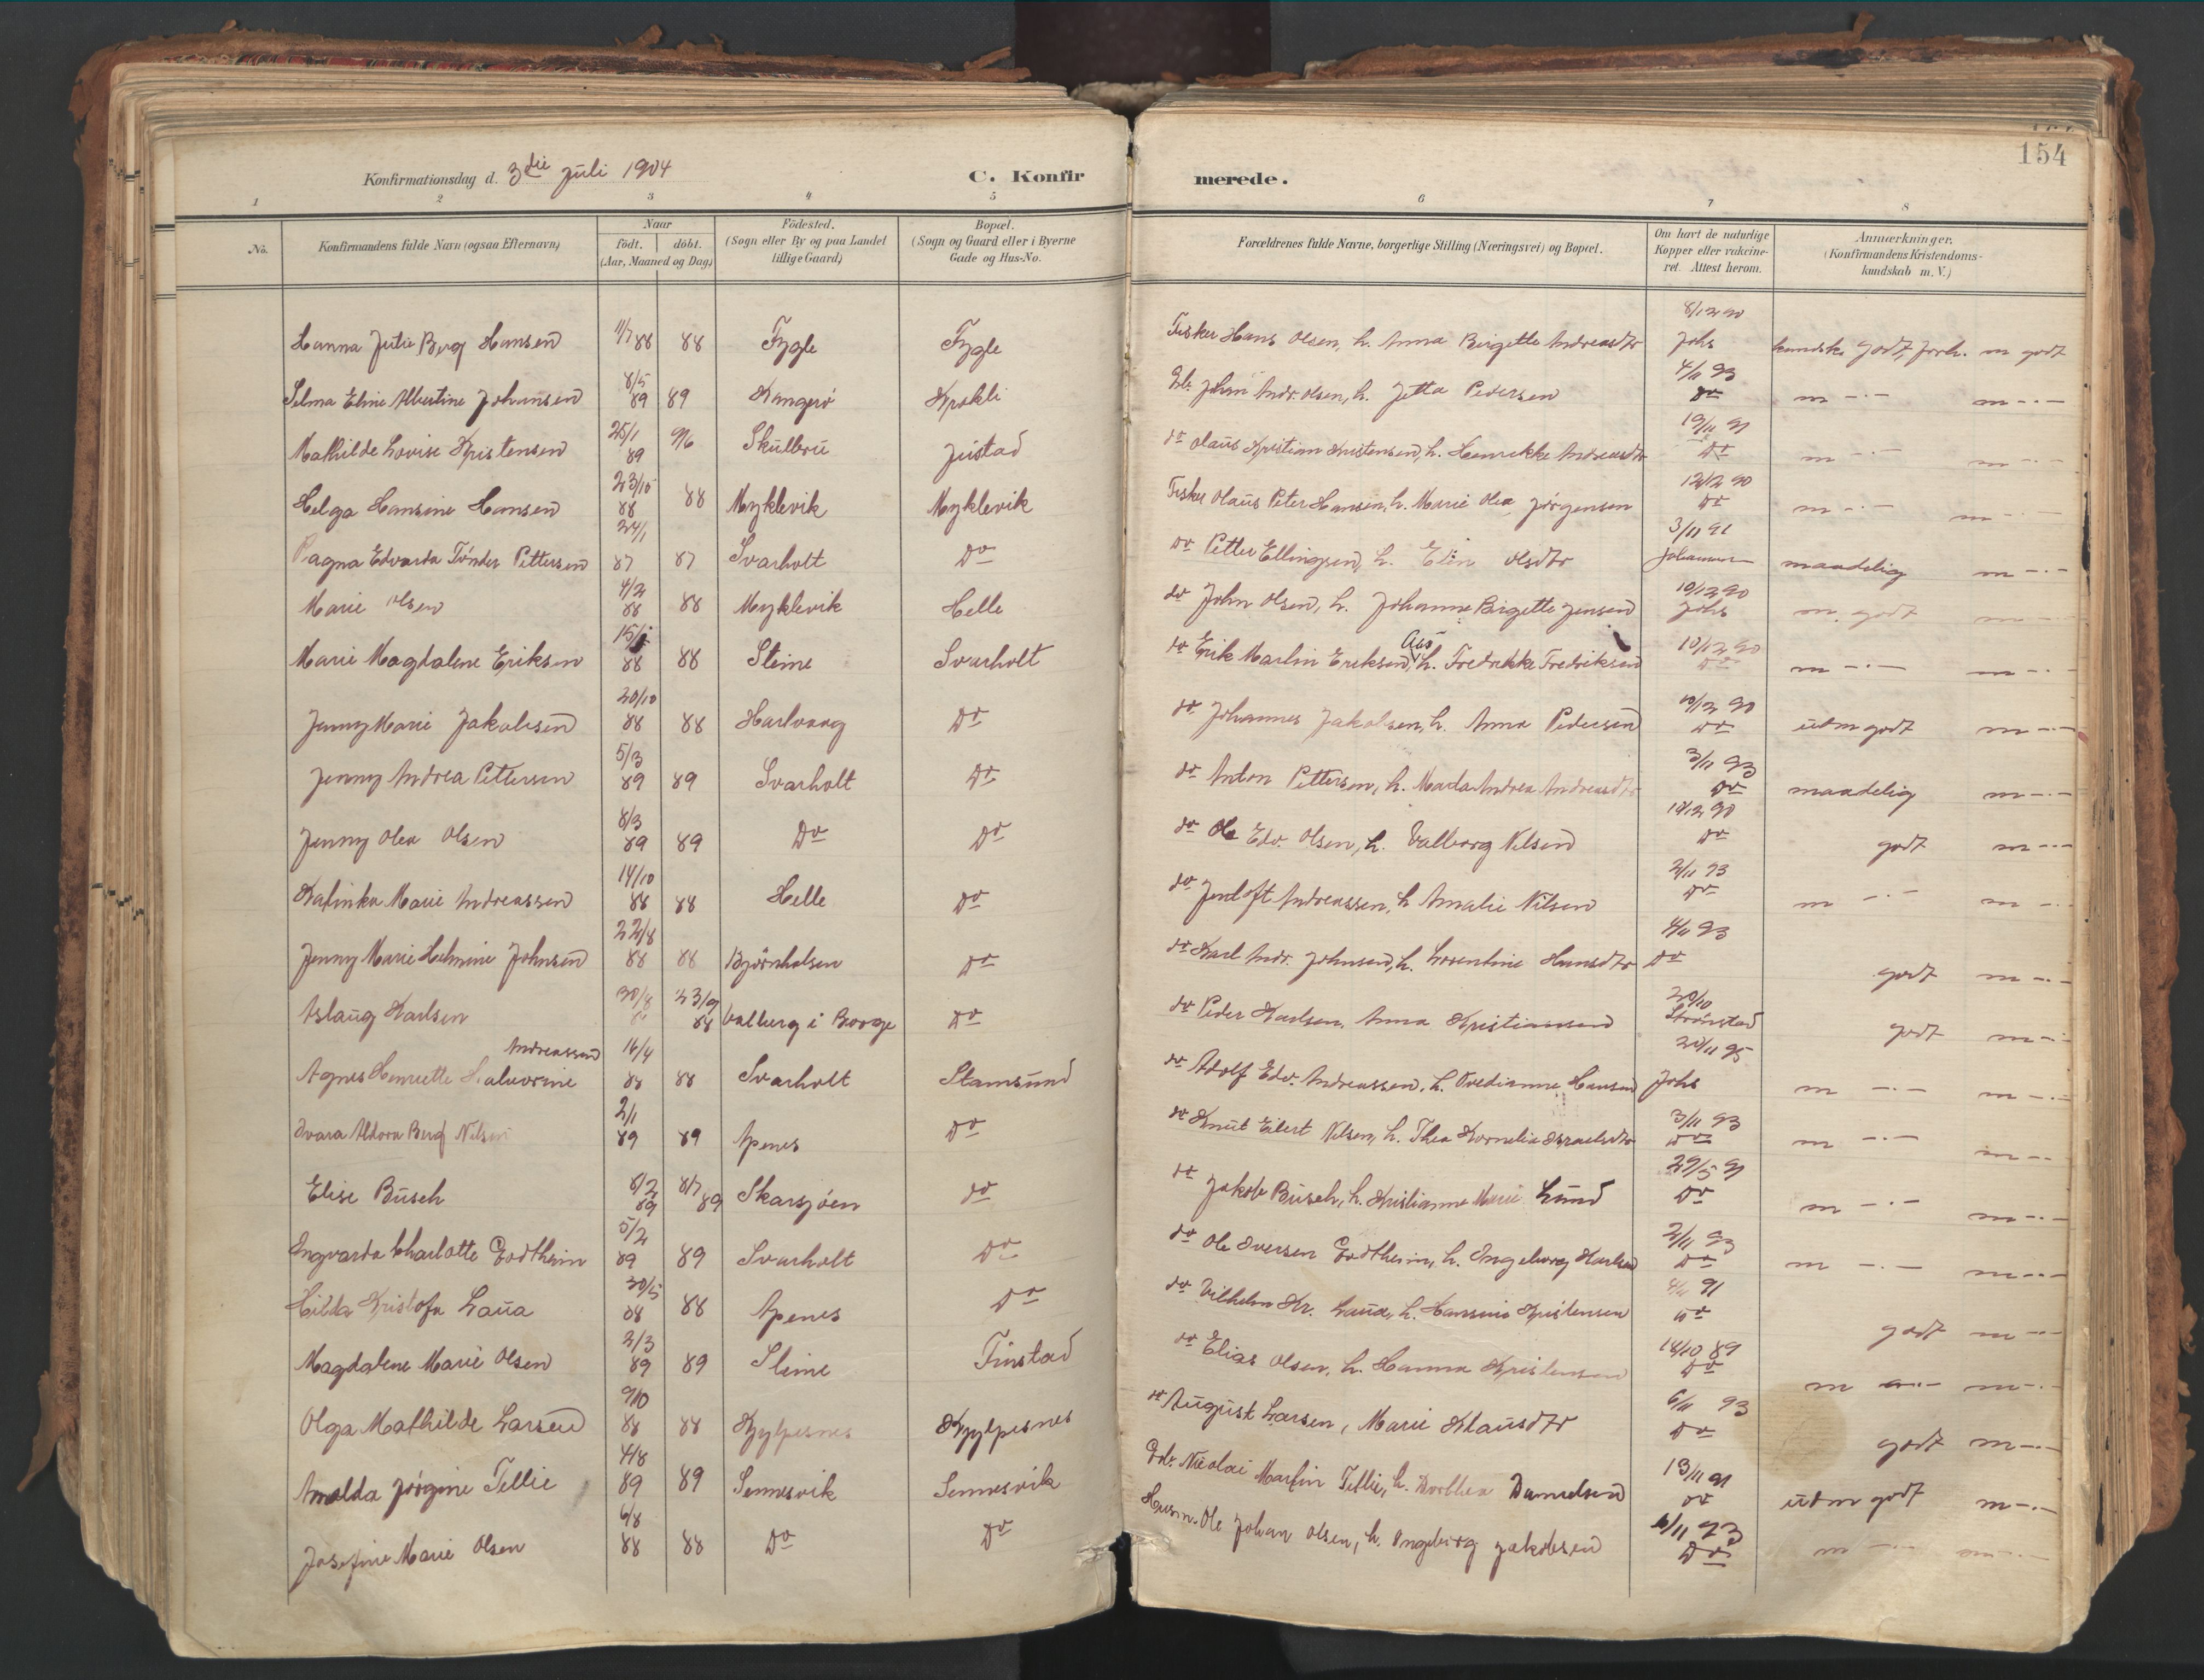 154
Konfirmationsdag d. 3die Juli 1904 C. Konfirmerede.
1 2 3 4 5 6 7 8
No. Konfirmandens fulde Navn (ogsaa Efternavn) Naar födt. döbt. (Aar, Maaned og Dag) Födested. (Sogn eller By og paa Landet tillige Gaard) Bopæl. (Sogn og Gaard eller i Byerne Gade og Hus-No. Forældrenes fulde Navne, borgerlige Stilling (Næringsvei) og Bopæl. Om havt de naturlige Kopper eller vakcineret. Attest herom. Anmærkninger. (Konfirmandens Kristendomskundskab m. V.)
Hanna Julie Berg Hansen 11/7 88 88 Fygle Fygle Fisker Hans Olsen, h. Anna Birgitte Andreasdtr 8/12 90 Johs kundsk. godt, forh. m godt
Selma Eline Albertine Johansen 8/5 89 89 Kangerö Krokli Gbr. Johan Andr. Olsen, h. Jetta Pedersen 4/11 93 do m -.- m -.-
Mathilde Lovise Kristensen 25/1 89 9/6 Skullbru Justad do Olaus Kristian Kristensen, h. Henrikke Andreasdtr 19/11 91 Do m -.- m -.-
Helga Hansine Hansen 23/10 88 88 Myklevik Myklevik Fisker Olaus Peter Hansen, h. Marie Olea Jörgensen 12/12 90 Do m -.- m -.-
Ragna Edvarda Tönder Pettersen 24/1 87 87 Svarholt Do Do Petter Ellingsen, h. Elin Olsdtr 3/11 91 Johannes maadelig m -.-
Marie Olsen 4/2 88 88 Myklevik Helle do John Olsen, h. Johanne Birgitte Jensen 10/12 90 Johs m. godt m -
Marie Magdalene Eriksen 15/1 88 88 Steine Svarholt do Erik Marlin Eriksen, h. Fredrikke Fredriksen 10/12 90 Do m -.- m -.-
Jenny Marie Jakobsen 20/10 88 88 Hartvaag Do do Johannes Jakobsen, h. Anna Pedersen 10/12 90 Do udm godt m -.-
Jenny Andrea Pettersen 5/3 89 89 Svarholt Do do Anton Pettersen, h. Marta Andrea Andreasdtr 3/11 93 Do maadelig m -.-
Jenny Olea Olsen 8/3 89 89 Do Do do Ole Edv. Olsen, h. Valborg Nilsen 10/12 90 Do godt m -.-
Katinka Marie Andreassen 14/10 88 88 Helle Do do Jentoft Andreassen, h Amalie Nilsen 2/11 93 Do m -.- m -.-
Jenny Marie Helmine Johnsen 22/8 88 88 Björnholsen Do do Karl Andr. Johnsen, h. Lorentine Hansdtr 4/11 93 Do godt m -.-
Aslaug Karlsen 30/8 23/9 88 Valberg i Borge Do do Peder Karlsen, Anna Kristiansen 20/10 Strönstad godt m -.-
Agnes Henriette Halvorine Andreassen 16/4 88 88 Svarholt Stamsund do Adolf Edv. Andreassen, h. Ovedianne Hansen 20/11 95 Johs m -.- m -.-
Ivara Aldora Berg Nilsen 2/1 89 89 Apenes Do do Knut Eilert Nilsen, h. Thea Kornelia Israelsdtr 3/11 93 Do m -.- m -.-
Elise Busch 8/2 89 8/7 89 Skarsjöen do do Jakob Busch, h. Kristianne Marie Lund 29/5 91 Do m -.- m -.-
Ingvarda Charlotte Godtheim 5/2 89 89 Svarholt Do do Ole Iversen Godtheim, h. Ingeborg Karlsen 2/11 93 Do m -.- m -.-
Hilda Kristofa Laua 30/5 88 88 Apenes Do do Vilhelm Kr. Laua, h. Hansine Kristensen 4/11 91 Do godt m -.-
Magdalene Marie Olsen 2/3 89 89 Steine Finstad do Elias Olsen, h. Hanna Kristensen 14/10 89 Do m -.- m -.-
Olga Mathilde Larsen 9/10 88 88 Kjylpesnes Kjylpesnes do August Larsen, Marie Klausdtr 6/11 93 Do godt m -.-
Amalda Jörgine Tellie 4/8 89 89 Sennesvik Sennesvik Gbr. Nicolai Marlin Tellie, h. Dorthea Danielsen 13/11 91 Do udm godt m -.-
Josefine Marie Olsen 6/8 88 88 Do Do Husm. Ole Johan Olsen, h. Ingeborg Jakobsen 6/11 93 Do m -.- m -.-